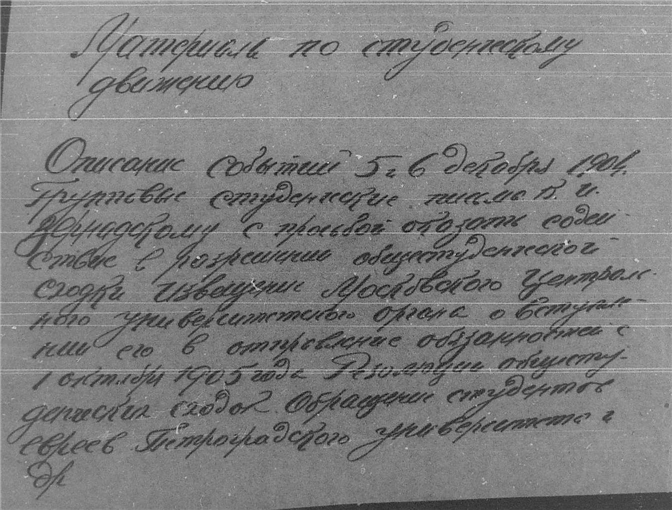 Материалы по студенческому
движению
Описание событий 5 и 6 декабря 1904.
Групповые студенческие письма В. И.
Вернадскому с просьбой оказать содей-
ствие в разрешении общестуденческой
сходки. Извещение Московского Централь-
ного университетского органа о вступле-
нии его в отправление обязанностей с
1 октября 1905 года. Резолюции общесту-
денческих сходок. Обращение студентов
евреев Петроградского университета и
др